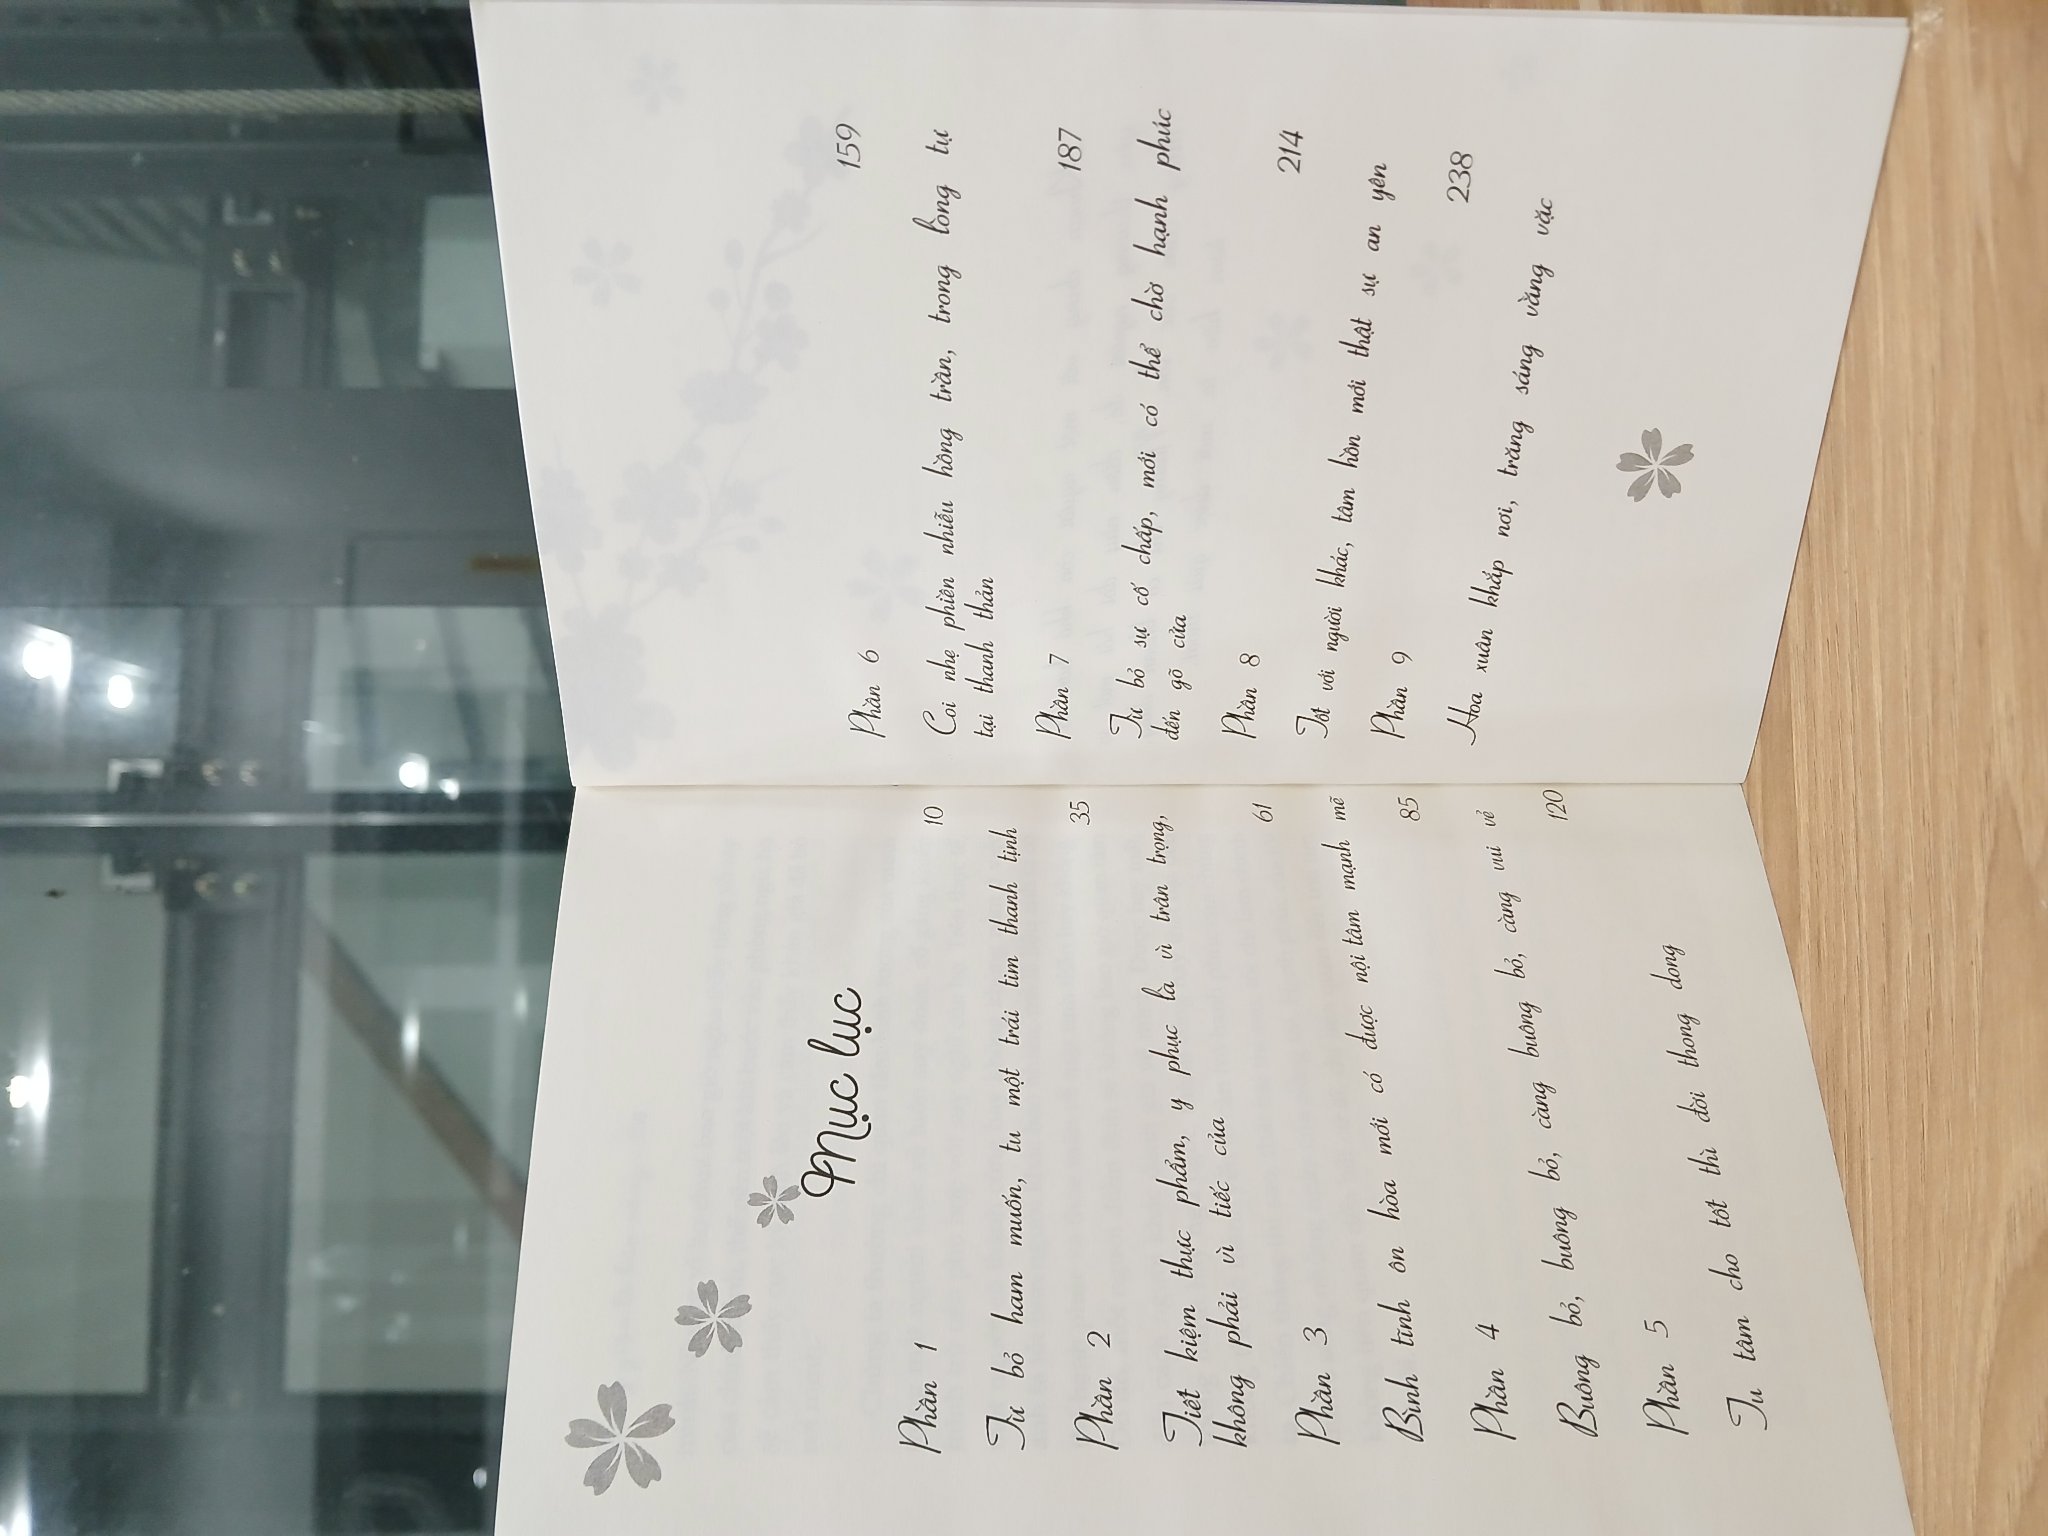 Mục lục
Phần 1 10
Từ bỏ ham muốn, tu một trái tim thanh tịnh
Phần 2 35
Tiết kiệm thực phẩm, y phục là vì trân trọng,
không phải vì tiếc của
Phần 3 61
Bình tĩnh ôn hòa mới có được nội tâm mạnh mẽ
Phần 4 85
Buông bỏ, buông bỏ, càng buông bỏ, càng vui vẻ
Phần 5 120
Tu tâm cho tốt thì đời thong dong
Phần 6 159
Coi nhẹ phiền nhiễu hồng trần, trong lòng tự
tại thanh thản
Phần 7 187
Từ bỏ sự cố chấp, mới có thể chờ hạnh phúc
đến gõ cửa
Phần 8 214
Tốt với người khác, tâm hồn mới thật sự an yên
Phần 9 238
Hoa xuân khắp nơi, trăng sáng vằng vặc